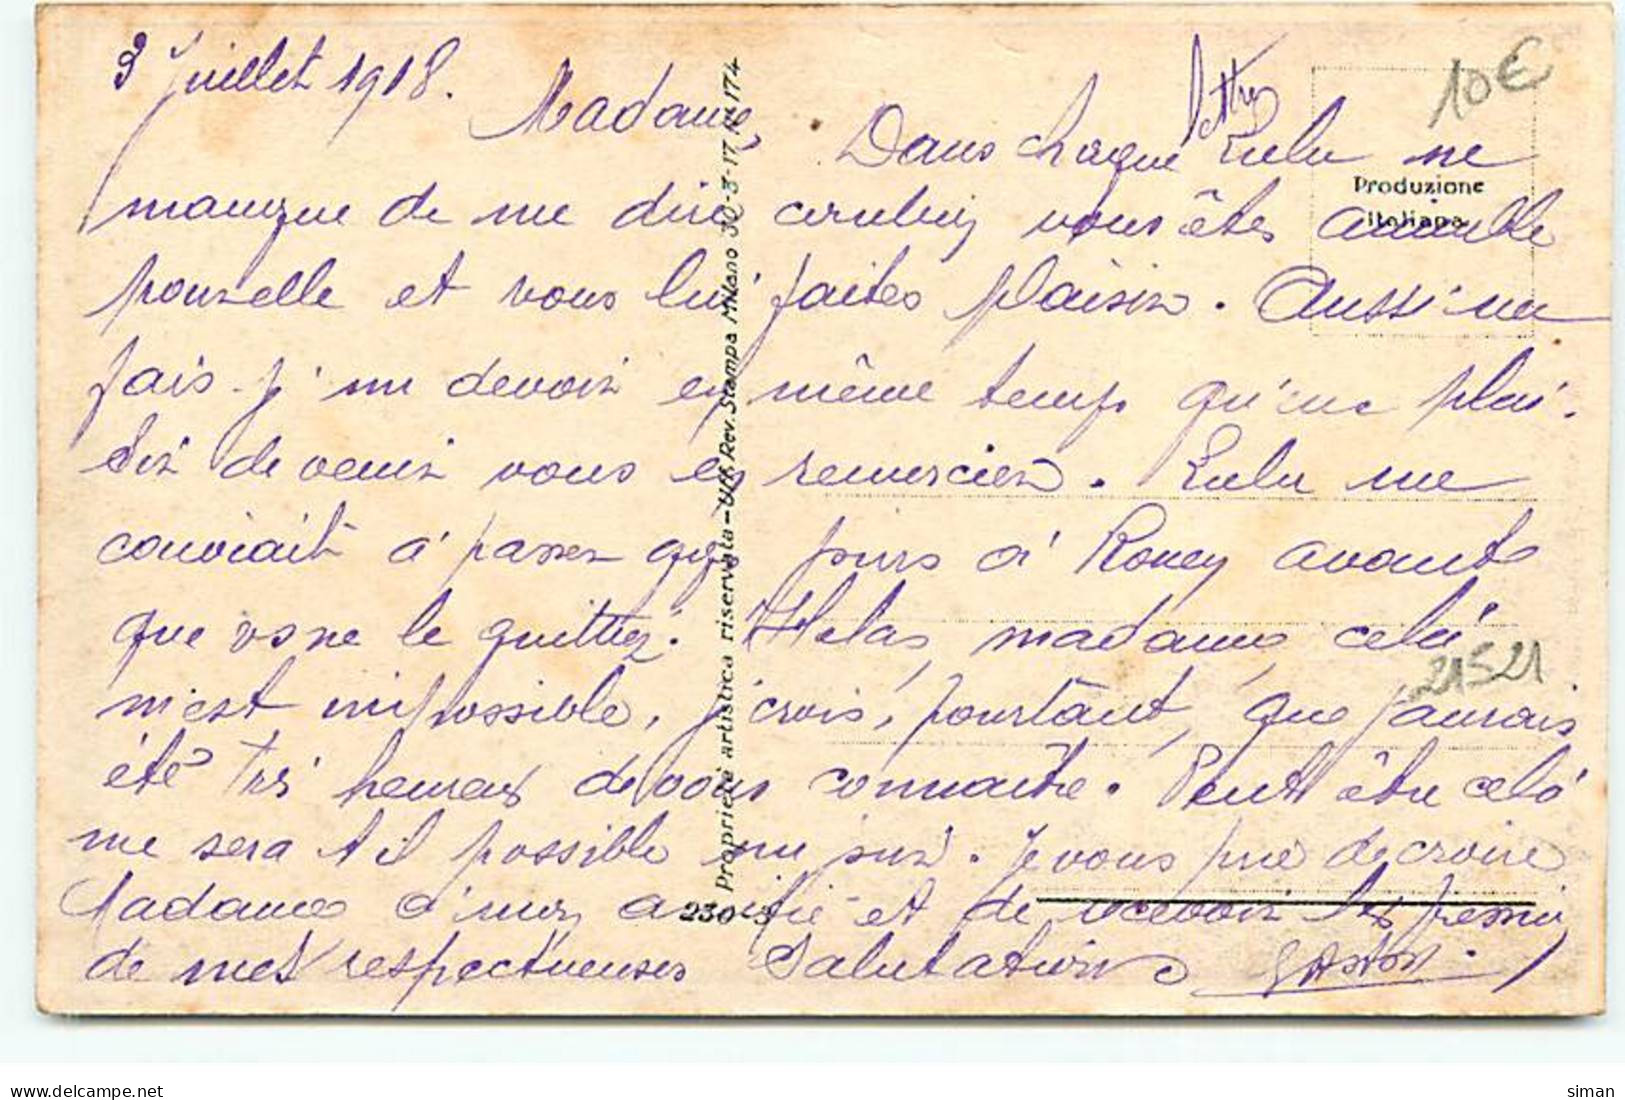 3 Juillet 1918.
Madame,
Dans chaque lettre Lulu ne
manque de me dire combien vous êtes aimable
pour elle et vous lui faites plaisir. Aussi me
fais-j'un devoir en même temps qu'un plai-
sir de venir vous en remercier. Lulu me
conviait à passer qq jours à Rouen avant
que vs ne le quittiez. Hélas, madame, celà
m'est impossible, j'crois, pourtant, que j'aurais
été très heureux de vous connaître. Peut être celà
me sera t il possible un jour. Je vous prie de croire
Madame à mon amitié et de recevoir les
de mes respectueuses Salutations Gaston.
10€
Produzione
italiana
21521
Proprietà artistica riservata - Uff. Rev. Stampa Milano 30-3-17 N. 174
230
siman